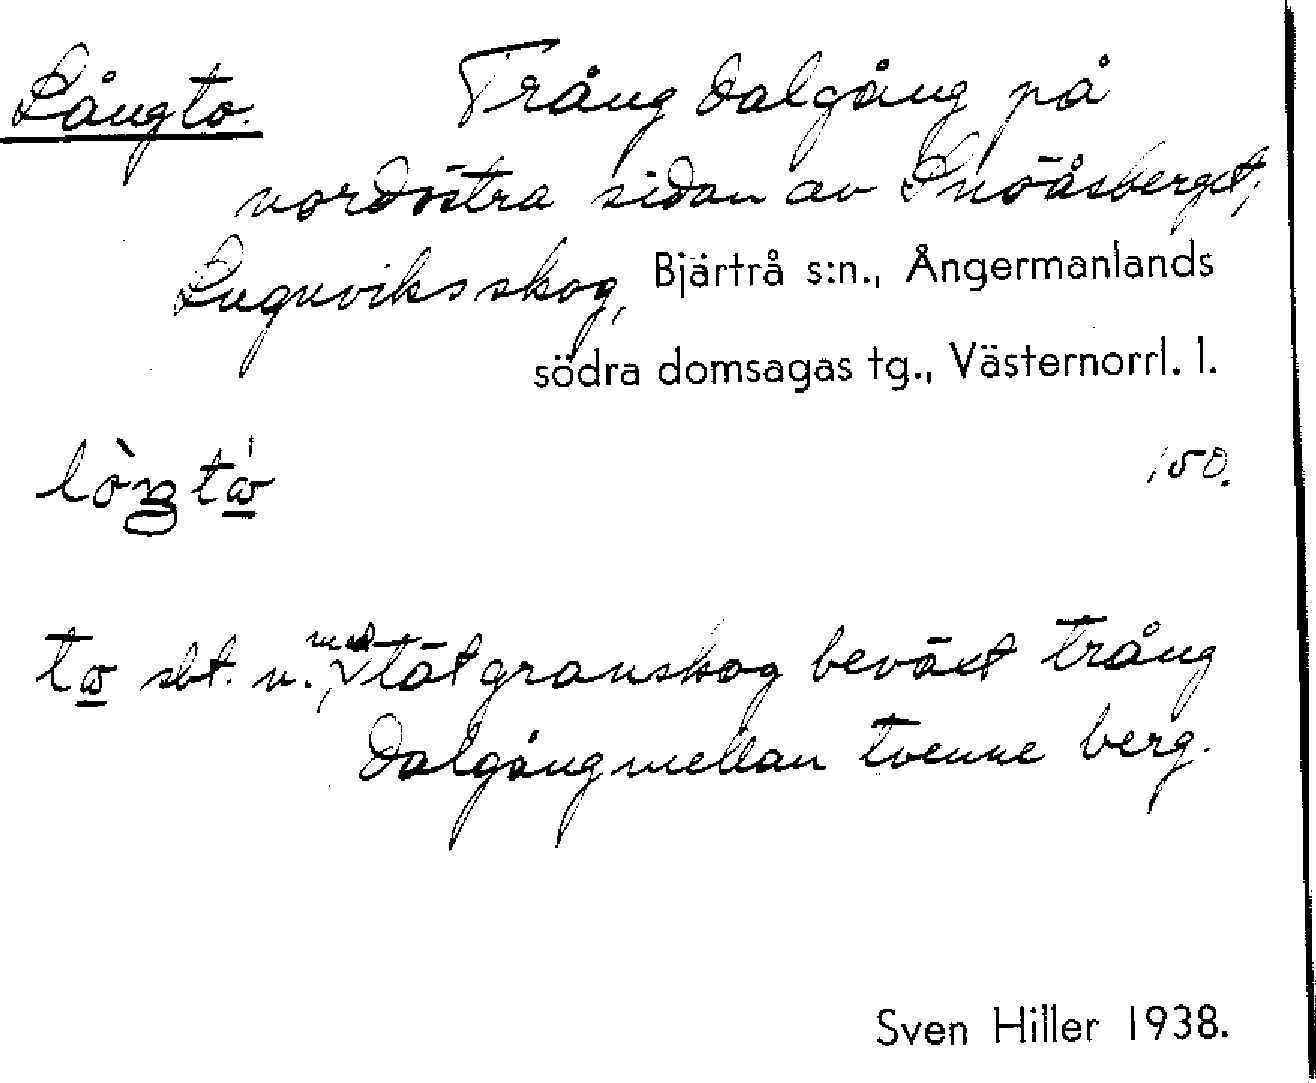 Långto. Trång dalgång på
nordöstra sidan av Snöåsberget,
Lugnviksskog, Bjärtrå s:n., Ångermanlands
södra domsagas tg., Västernorrl. l.
150.
to sbt. n. med tät granskog beväxt trång
dalgång mellan tvenne berg.
Sven Hiller 1938.